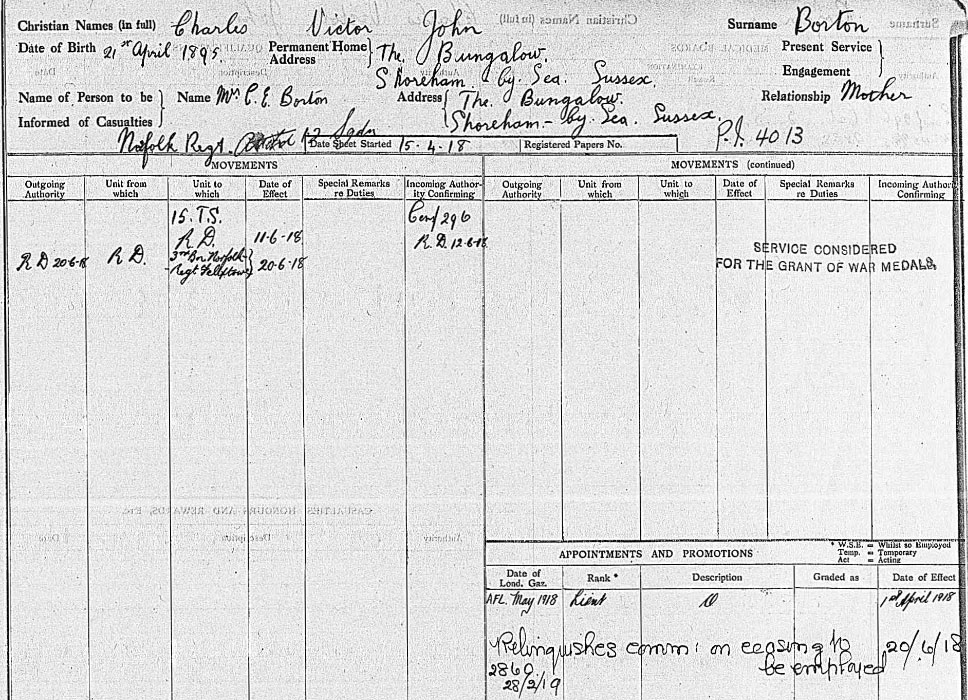 Christian Names (in full) Charles Victor John Surname Borton
Date of Birth 21st April 1895. Permanent Home Address The Bungalow. Shoreham by. Sea. Sussex. Present Service Engagement
Name of Person to be Informed of Casualties Name Mrs C. E. Borton Address The. Bungalow. Shoreham - by. Sea. Sussex. Relationship Mother
Norfolk Regt. 12 Sqdn Date Sheet Started 15-4-18 Registered Papers No. P.I. 4013
MOVEMENTS MOVEMENTS (continued)
Outgoing Authority Unit from which Unit to which Date of Effect Special Remarks re Duties Incoming Authority Confirming Outgoing Authority Unit from which Unit to which Date of Effect Special Remarks re Duties Incoming Author Confirming
15. T.S. /296
R.D. 11-6-18 R.D. 12-6-18
R D 20-6-18 R D. 3rd Bn. Norfolk Regt Felixtowe 20-6-18
SERVICE CONSIDERED
FOR THE GRANT OF WAR MEDALS.
CASUALTIES HONOURS AND REWARDS, Etc.
Authority Description Date
* W.S.E. = Whilst so Employed
Temp. = Temporary
Act = Acting
APPOINTMENTS AND PROMOTIONS
Date of Lond. Gaz. Rank * Description Graded as Date of Effect
AFL. May 1918 Lieut 1st April 1918
Relinquishes comm: on ceasing to be employed 20/6/18
2860
28/2/19